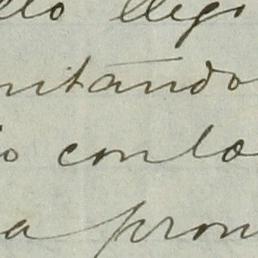 llego
nitando
o con la
a pron